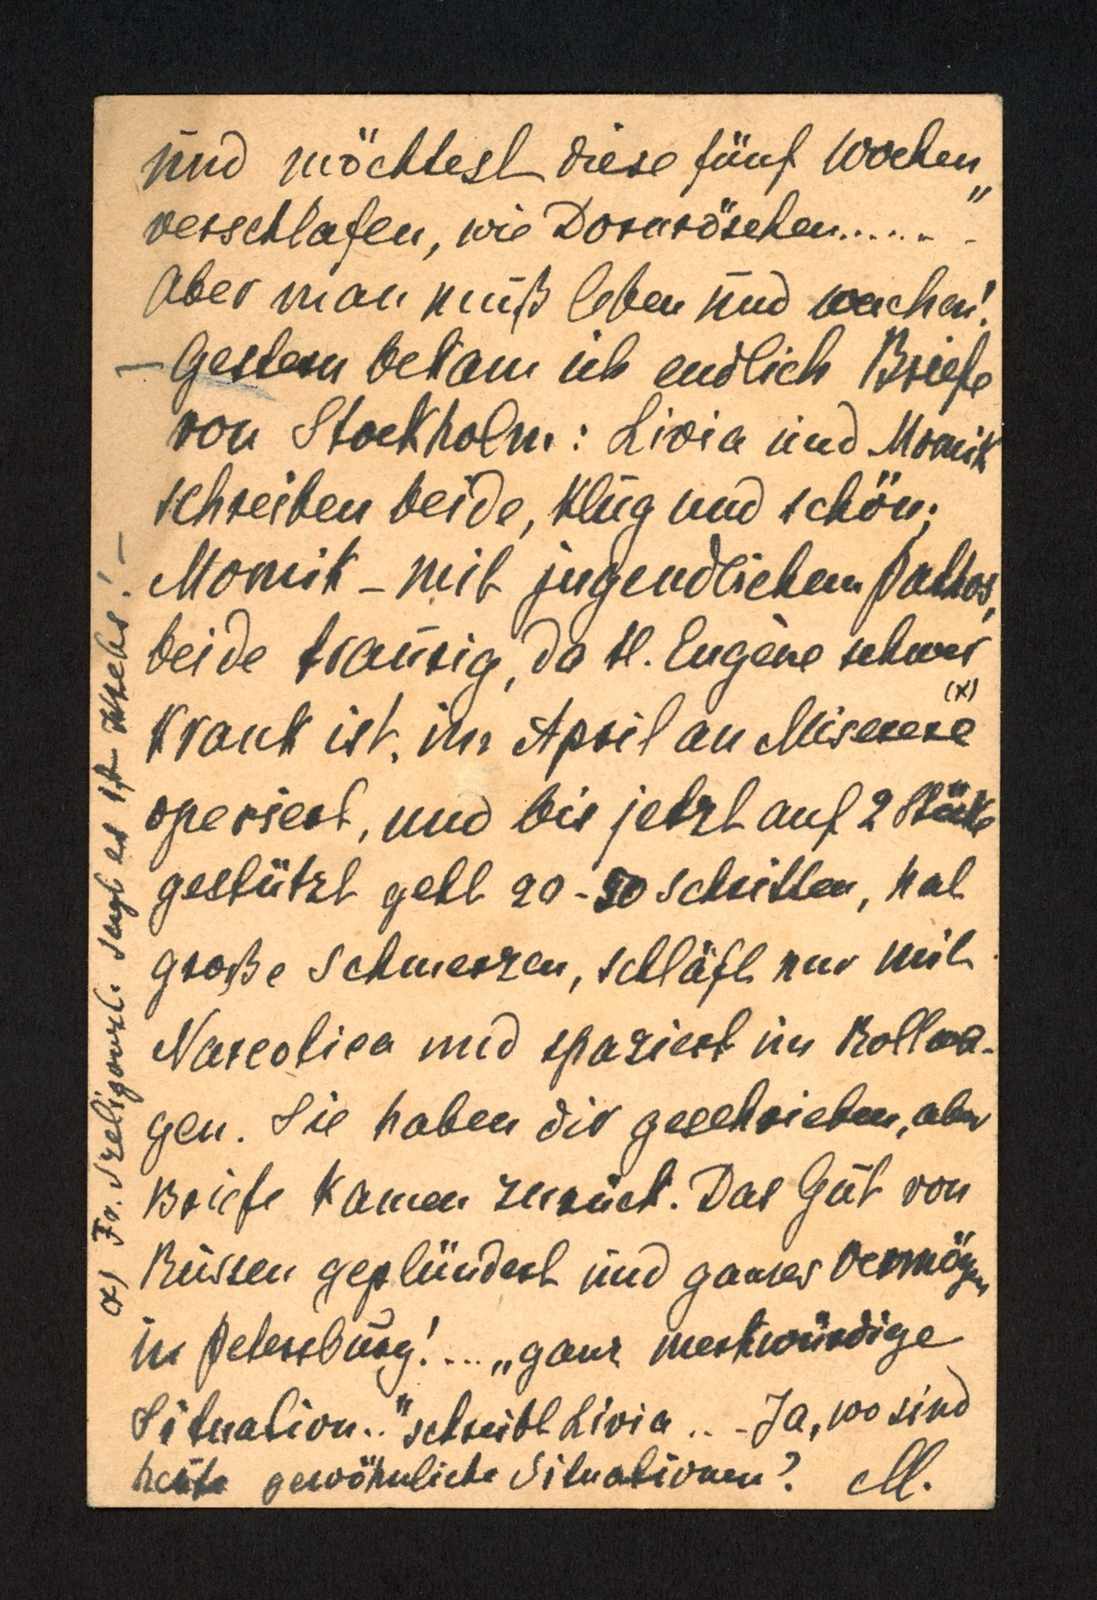 und möchtest diese fünf Wochen
verschlafen, wie Dornröschen......"-
Aber man muß leben und wachen!
– Gestern bekam ich endlich Briefe
von Stockholm: Livia und Momik
schreiben beide, klug und schön;
Momik – mit jugendlichem Pathos,
beide traurig, da H. Eugène schwer
krank ist, im April an Miserere (x)
operiert, und bis jetzt auf 2 Stöcke
gestützt geht 20-30 Schritten, hat
große Schmerzen, schläft nur mit
Narcotica und spaziert im Rollwa-
gen. Sie haben dir geschrieben, aber
Briefe kamen zurück. Das Gut von
Russen geplündert und ganzes Vermögen
in Petersburg!... „ganz merkwürdige
Situation.." schreibt Livia .. - Ja, wo sind
heute gewöhnliche Situationen? M.
x) Fr. sagt es ist Krebs! –